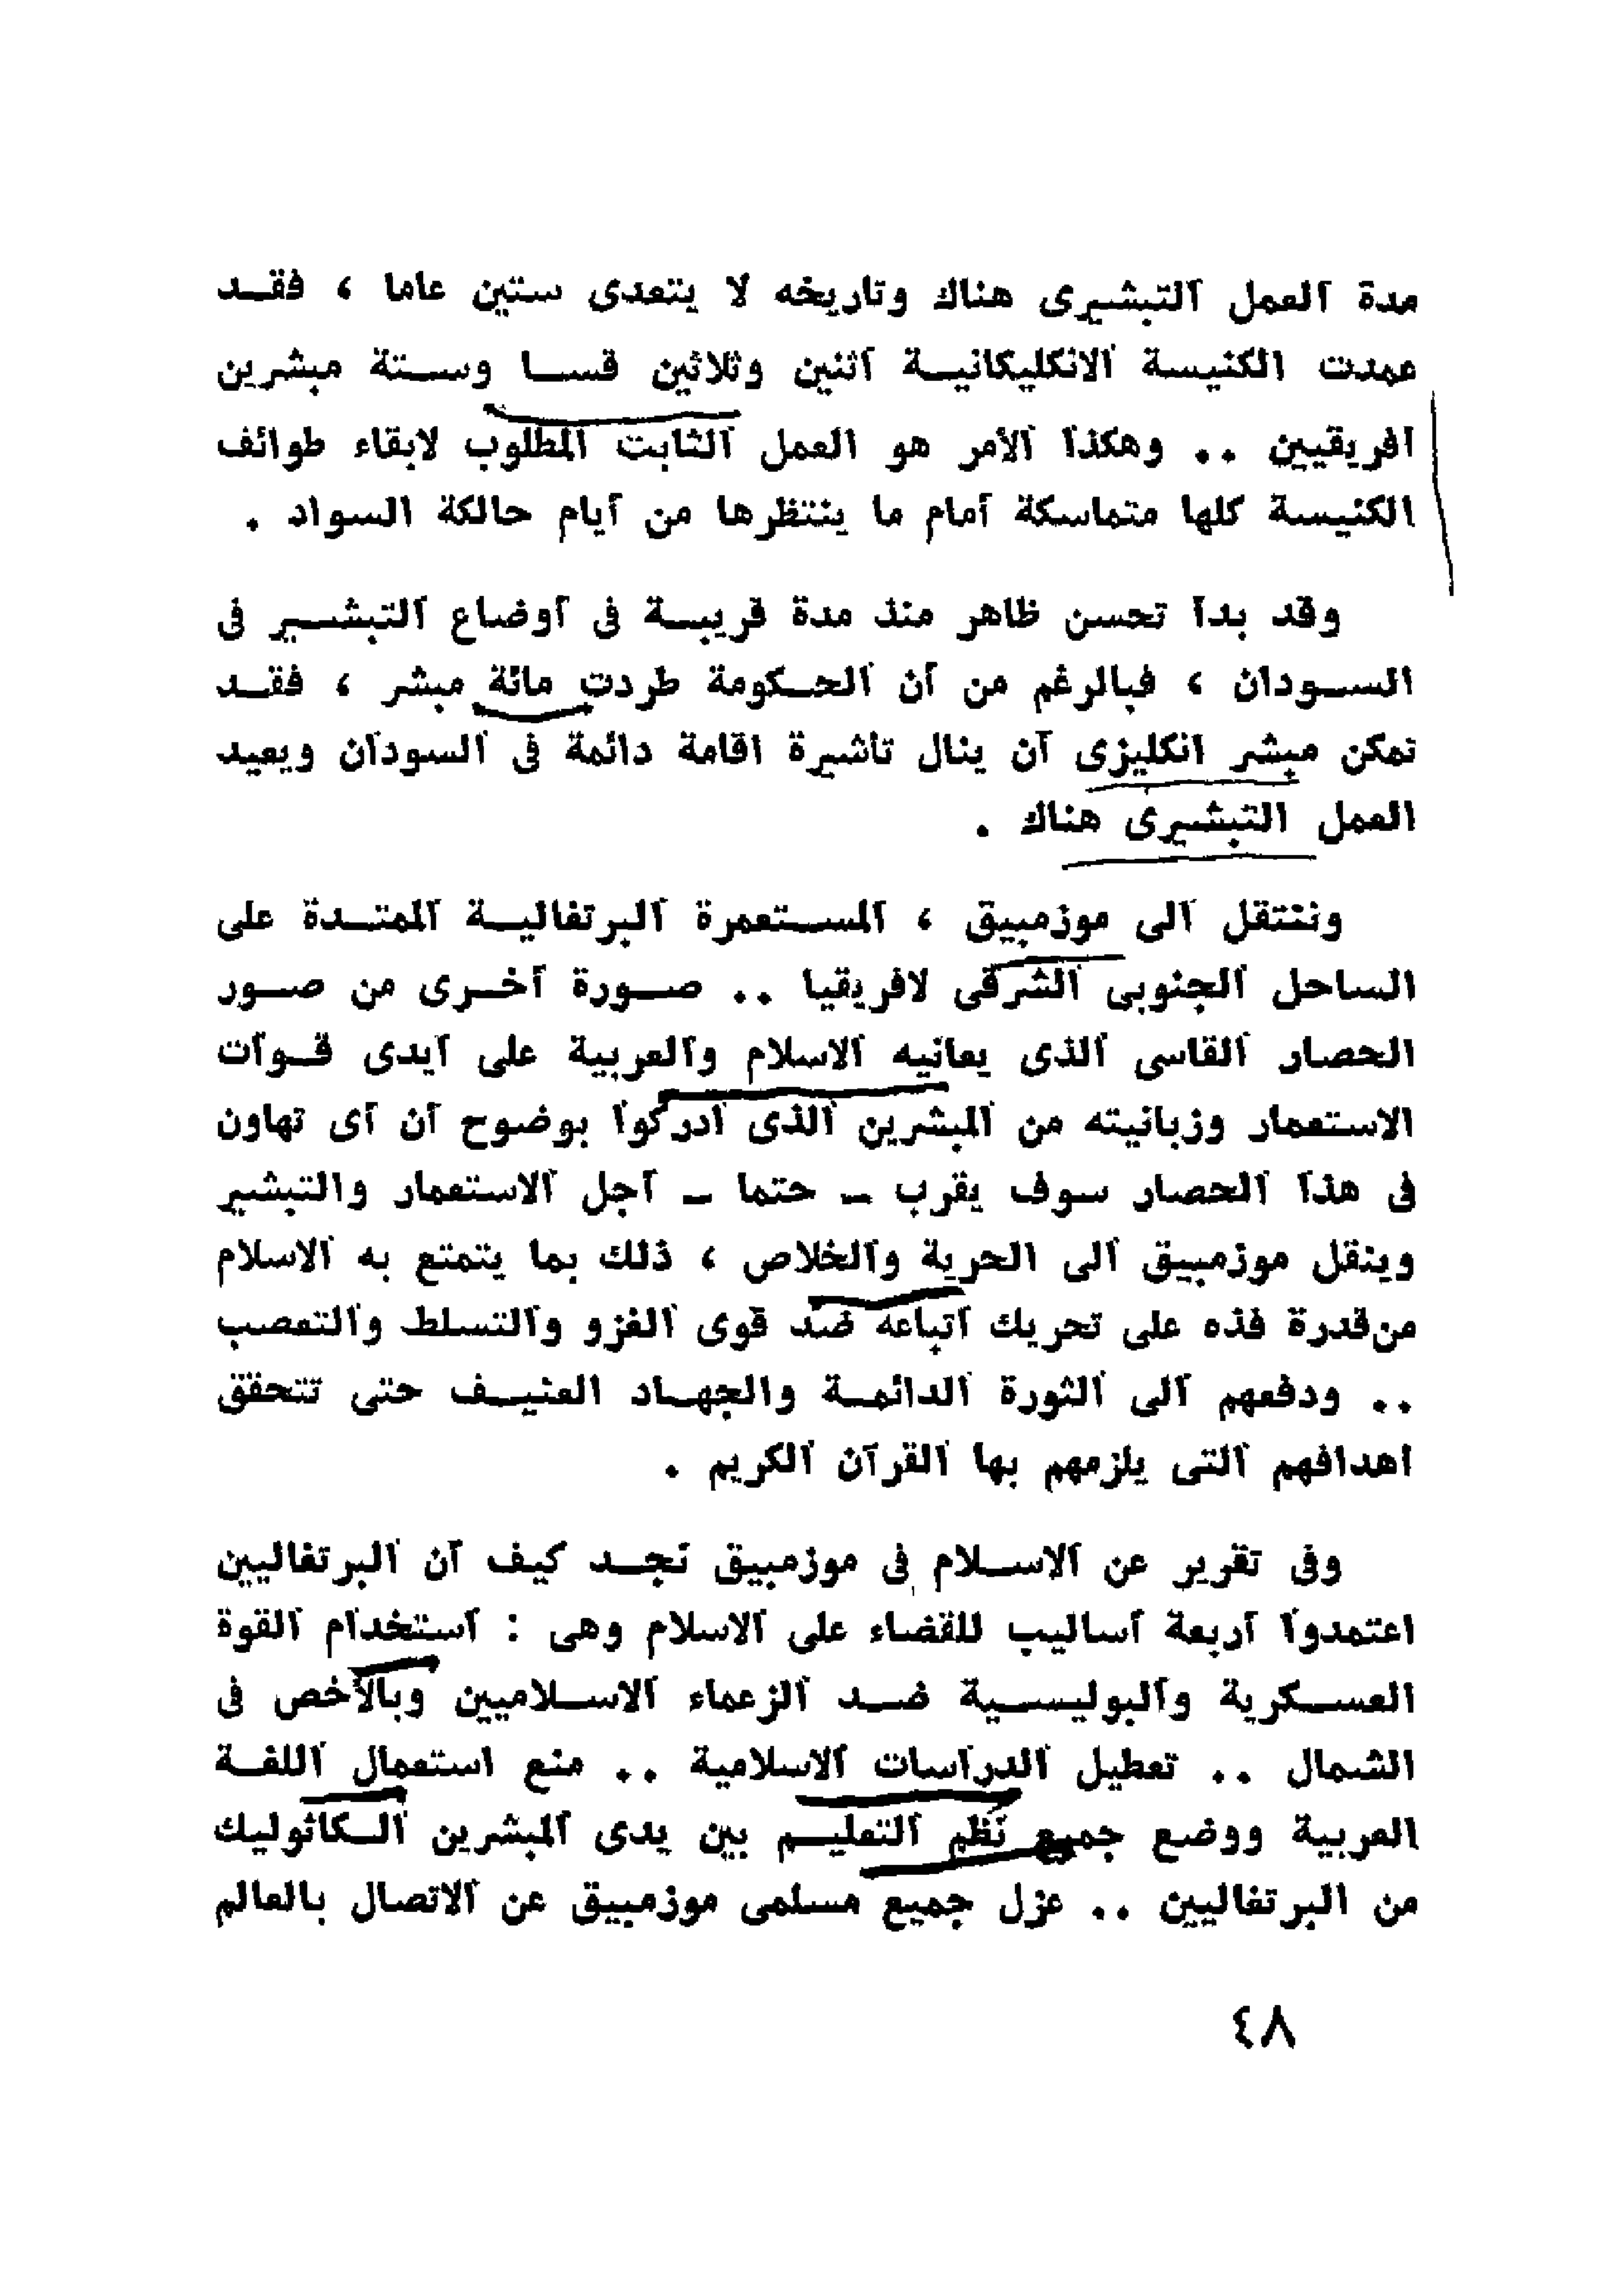 مدة العمل التبشيرى هناك وتاريخه لا يتعدى ستين عاما ، فقد
عمدت الكنيسة الانكليكانية اثنين وثلاثين قسا وستة مبشرين
افريقيين .. وهكذا الأمر هو العمل الثابت المطلوب لابقاء طوائف
الكنيسة كلها متماسكة أمام ما ينتظرها من أيام حالكة السواد .
وقد بدأ تحسن ظاهر منذ مدة قريبة فى أوضاع التبشير فى
السودان ، فبالرغم من أن الحكومة طردت مائة مبشر ، فقد
تمكن مبشر انكليزى أن ينال تأشيرة اقامة دائمة فى السودان ويعيد
العمل التبشيرى هناك .
وننتقل الى موزمبيق ، المستعمرة البرتغالية الممتدة على
الساحل الجنوبى الشرقى لافريقيا .. صورة أخرى من صور
الحصار القاسى الذى يعانيه الاسلام والعربية على أيدى قوات
الاستعمار وزبانيته من المبشرين الذى أدركوا بوضوح أن أى تهاون
فى هذا الحصار سوف يقرب - حتما - أجل الاستعمار والتبشير
وينقل موزمبيق الى الحرية والخلاص ، ذلك بما يتمتع به الاسلام
من قدرة فذه على تحريك أتباعه ضد قوى الغزو والتسلط والتعصب
.. ودفعهم الى الثورة الدائمة والجهاد العنيف حتى تتحقق
اهدافهم التى يلزمهم بها القرآن الكريم .
وفى تقرير عن الاسلام فى موزمبيق نجد كيف أن البرتغاليين
اعتمدوا أربعة أساليب للقضاء على الاسلام وهى : استخدام القوة
العسكرية والبوليسية ضد الزعماء الاسلاميين وبالأخص فى
الشمال .. تعطيل الدراسات الاسلامية .. منع استعمال اللغة
العربية ووضع جميع نظم التعليم بين يدى المبشرين الكاثوليك
من البرتغاليين .. عزل جميع مسلمى موزمبيق عن الاتصال بالعالم
٤٨